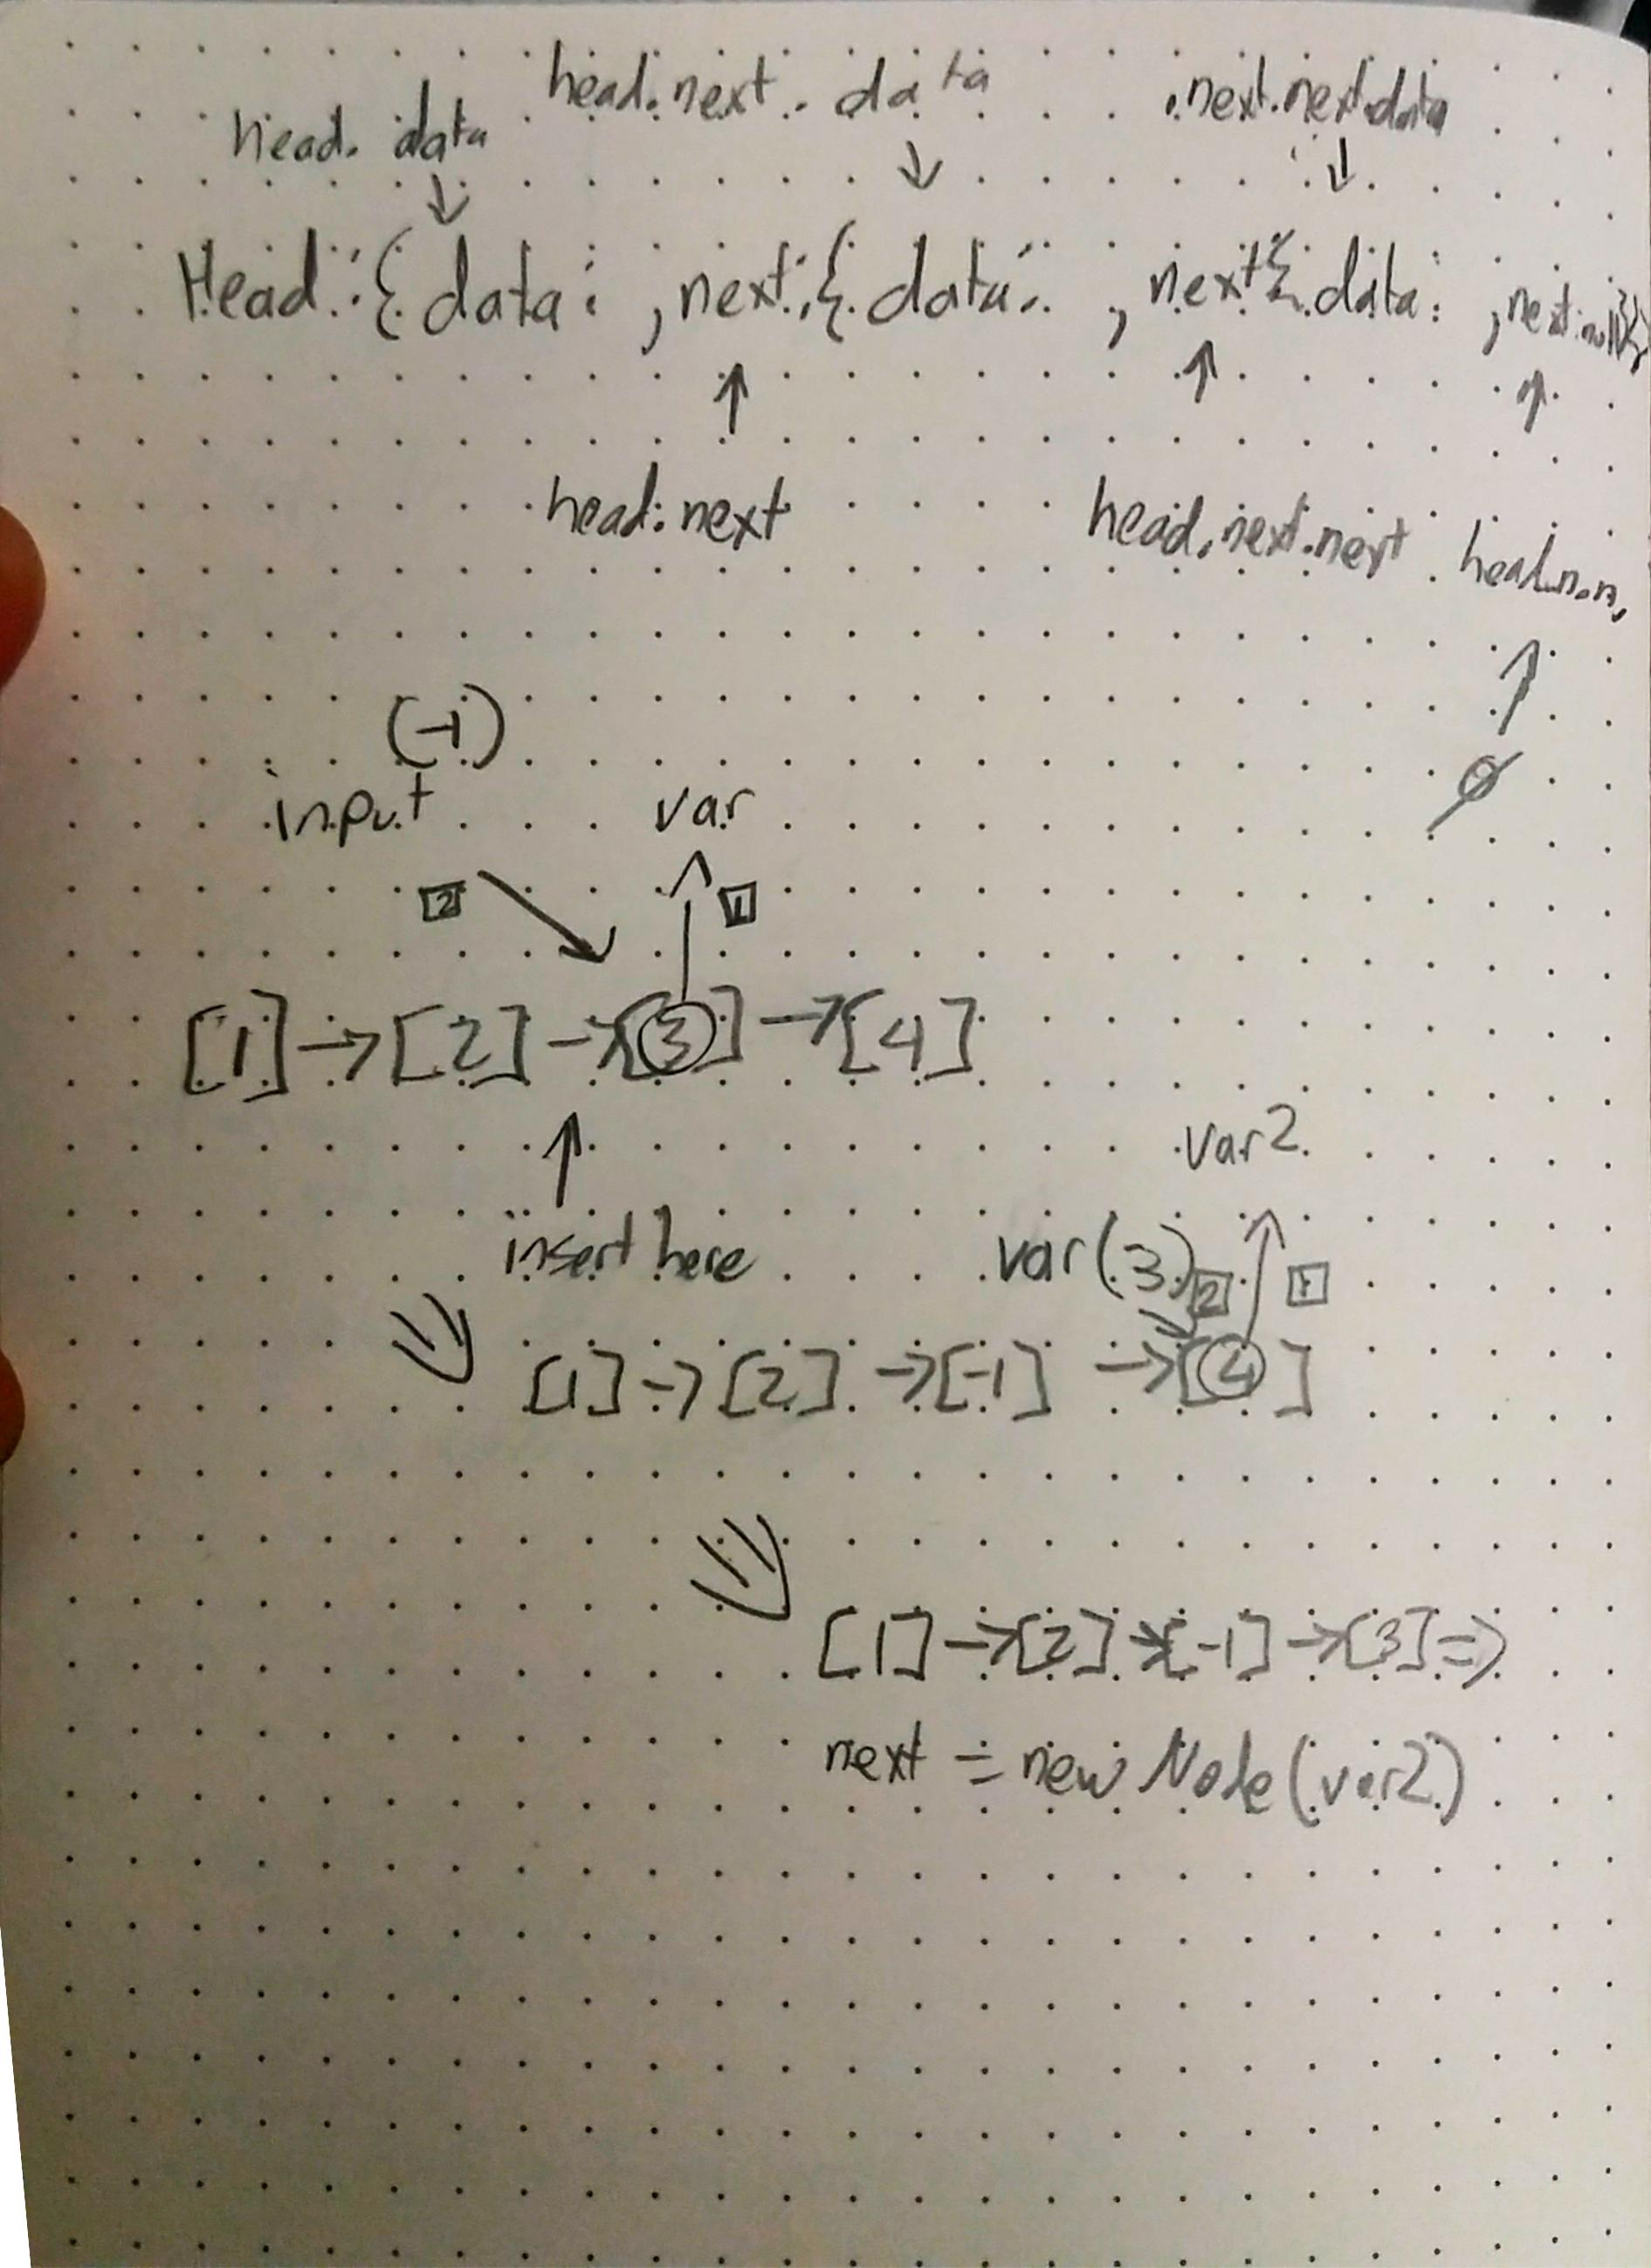 head.next.data .next.next.data
head.data
Head:{data: ,next:{data: ,next{data: ,next:null}}
head.next head.next.next head.n.n.
∅
(-1)
input var
2 1
[1]→[2]→[3]→[4]
var2
insert here var(3) 2 1
[1]→[2]→[-1]→[4]
[1]→[2]→[-1]→[3]⇒
next = new Node(var2)